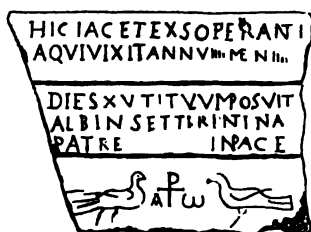 HIC IACET EXSOPERANTI
A QVI VIXIT ANNV IIII MEN IIII
DIES XV TITVVM POSVIT
ALBINS ET TIRINTINA
PATRE IN PACE
A ⳨ ω